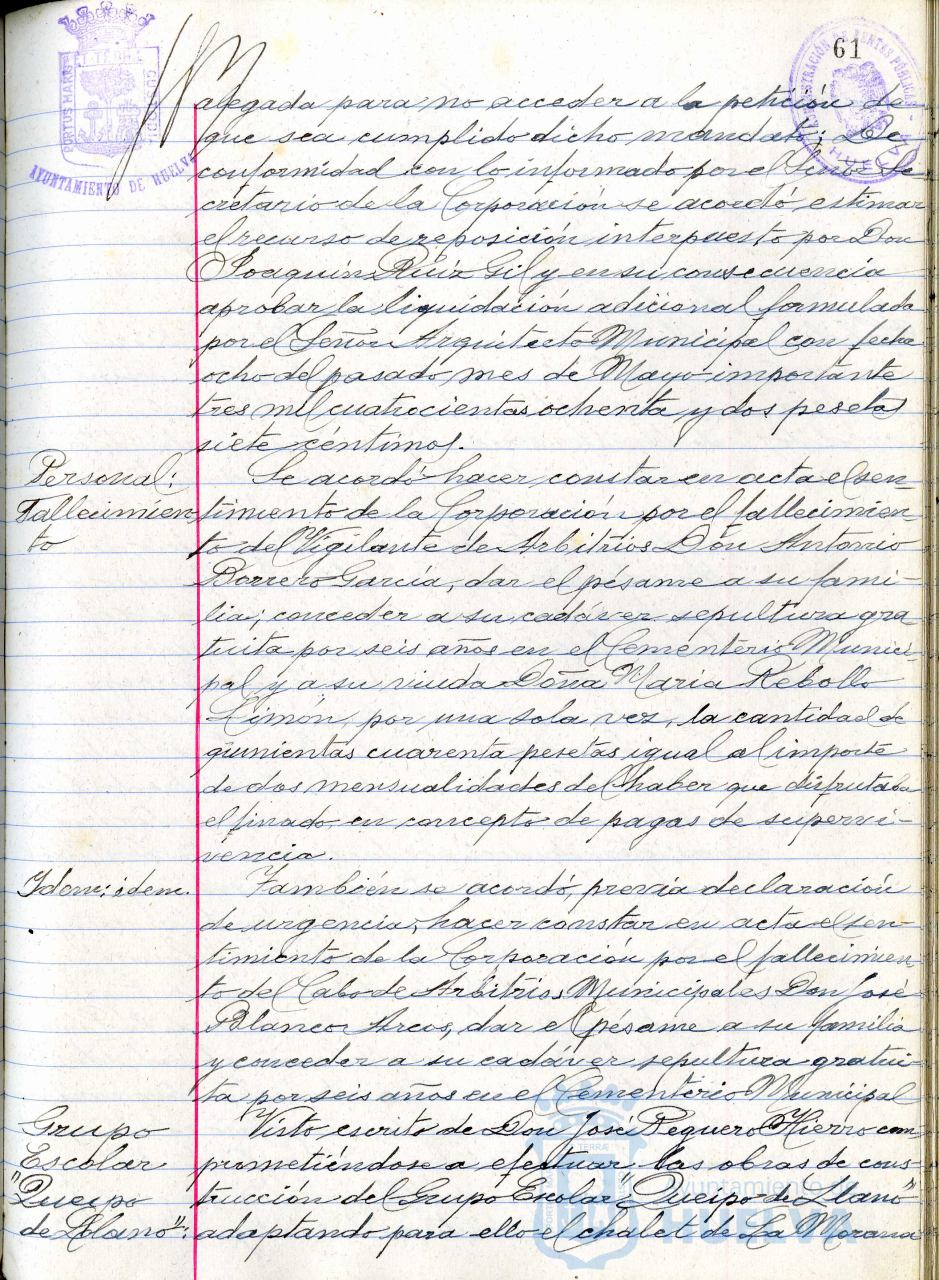 61
PORTUS MARIS ET TERRÆ CUSTODIA
AYUNTAMIENTO DE HUELVA
ADMINISTRACIÓN DE RENTAS PÚBLICAS
HUELVA
alegada para no acceder a la petición de
que sea cumplido dicho mandato; De
conformidad con lo informado por el Señor Se
cretario de la Corporación se acordó, estimar
el recurso de reposición interpuesto por Don
Joaquín Ruíz Gil y en su consecuencia
aprobar la liquidación adicional formulada
por el Señor Arquitecto Municipal con fecha
ocho del pasado mes de Mayo importante
tres mil cuatrocientas ochenta y dos pesetas
siete céntimos.
Personal:
Fallecimien
to
Se acordó hacer constar en acta el sen-
timiento de la Corporación por el fallecimien-
to del Vigilante de Arbitrios Don Antonio
Borrero García, dar el pésame a su fami-
lia; conceder a su cadáver sepultura gra-
tuita por seis años en el Cementerio Munici-
pal y a su viuda Doña María Rebollo
Limón, por una sola vez, la cantidad de
quinientas cuarenta pesetas igual al importe
de dos mensualidades del haber que disfrutaba
el finado, en concepto de pagas de supervi-
vencia.
Idem: idem.
También se acordó, previa declaración
de urgencia, hacer constar en acta el sen-
timiento de la Corporación por el fallecimien
to del Cabo de Arbitrios Municipales Don José
Blanco Arcos, dar el pésame a su familia
y conceder a su cadáver sepultura gratui-
ta por seis años en el Cementerio Municipal
Grupo
Escolar
"Queipo
de Llano":
Visto escrito de Don José Reguero Hierro com
prometiéndose a efectuar las obras de cons-
trucción del Grupo Escolar "Queipo de Llano"
adaptando para ello el chalet de La Morana
Ayuntamiento de
HUELVA